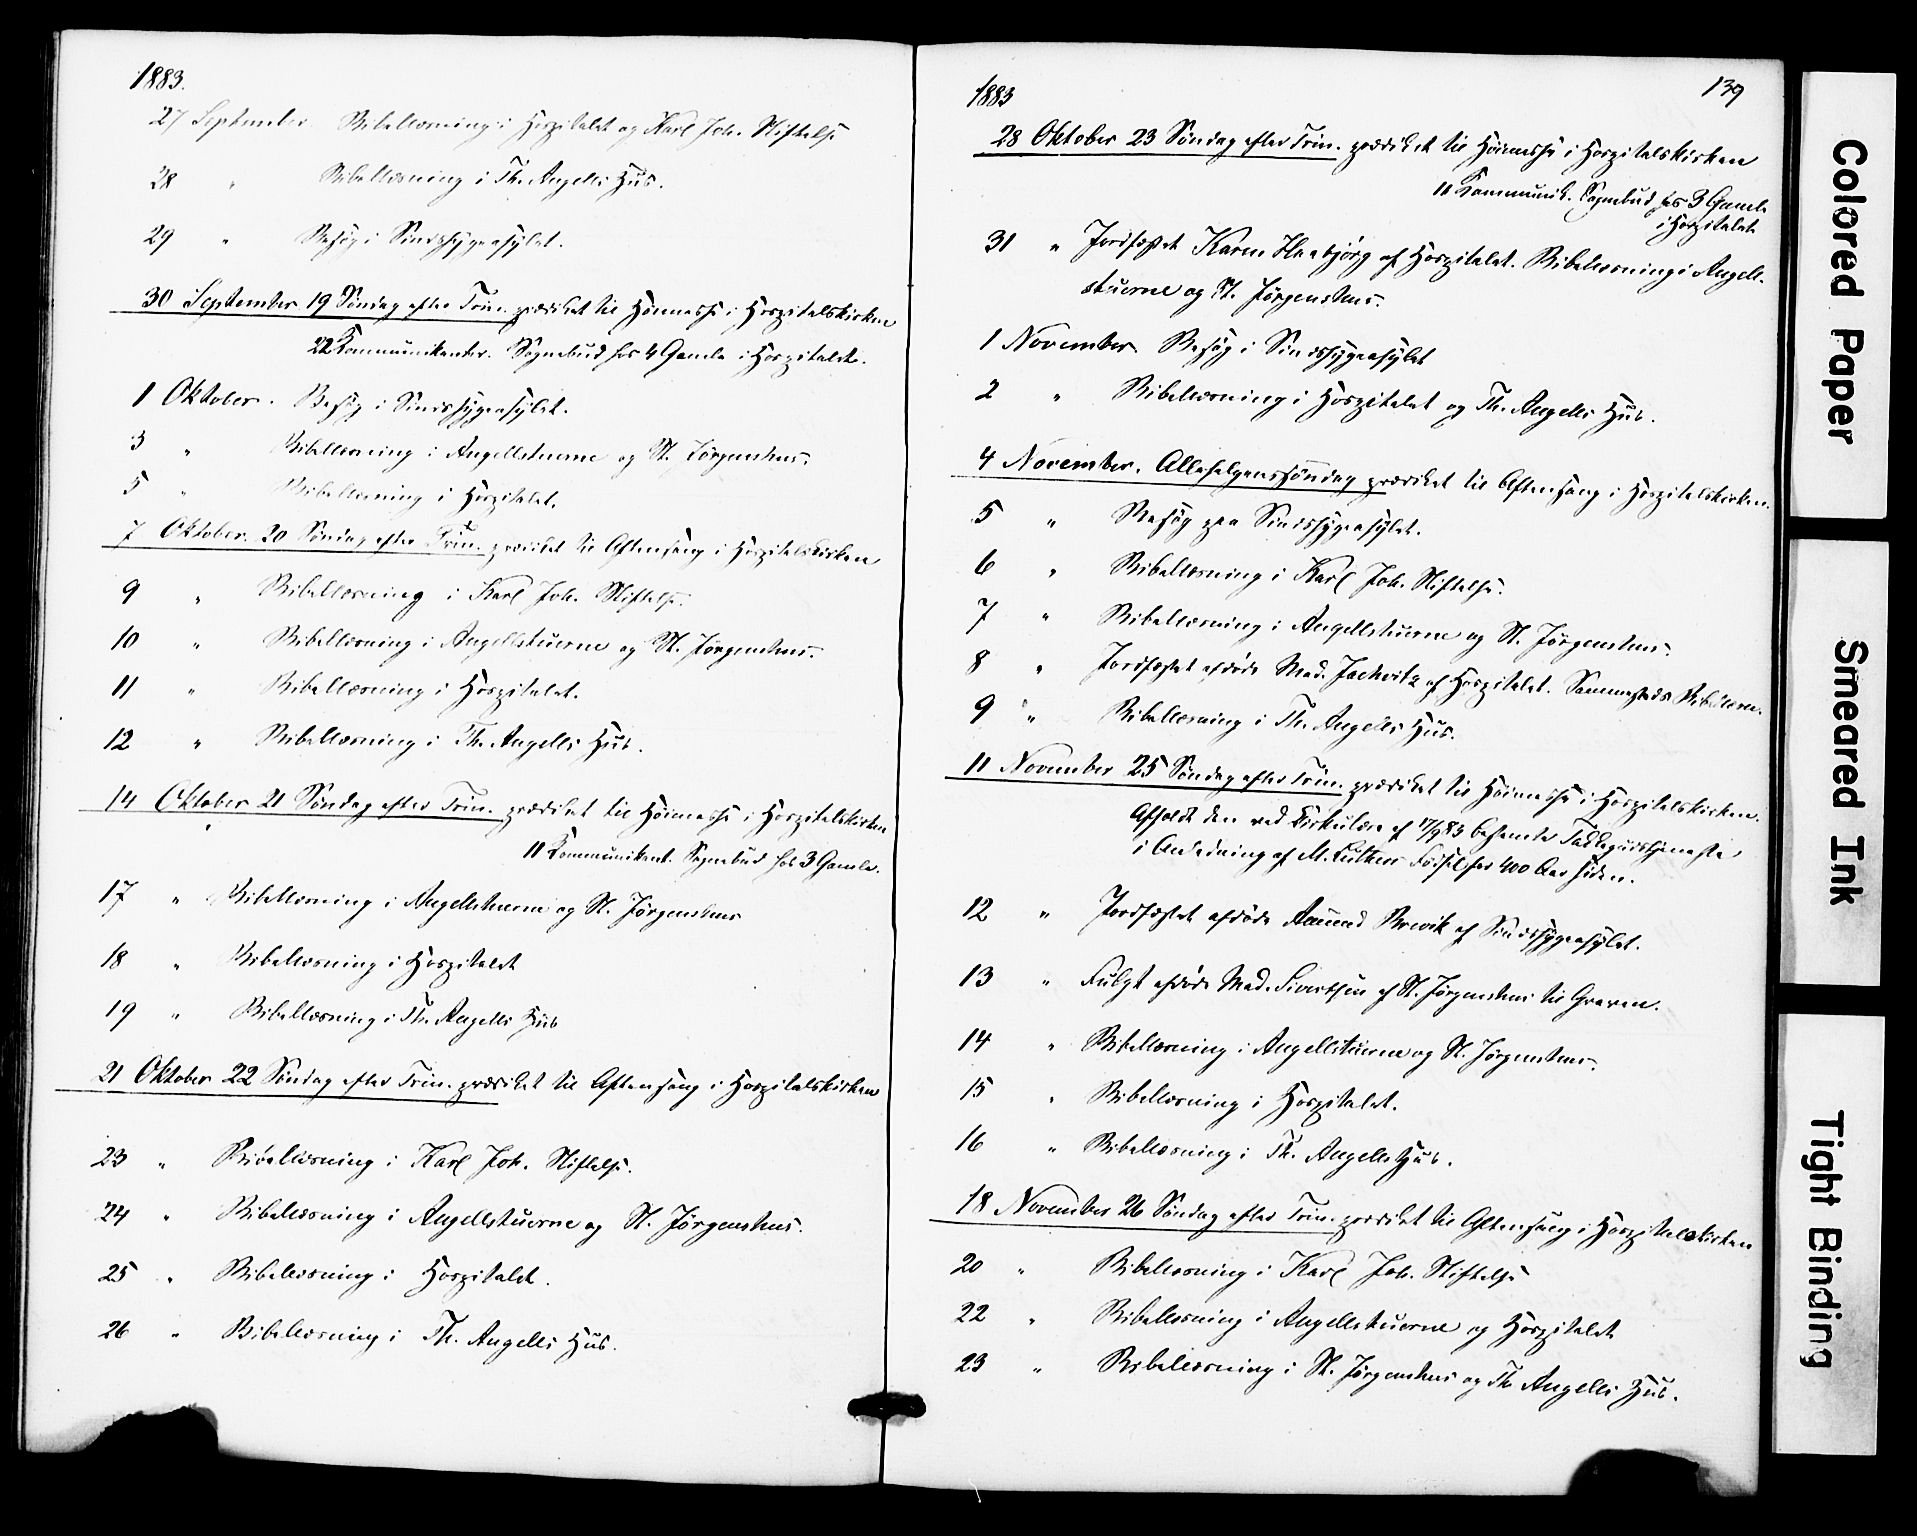 1883.
27 September Bibellæsning i Hospitalet og Karl Joh. Stiftelse
28 " Bibellæsning i Th. Angells Hus.
29 " Besøg i Sindssygeasylet.
30 September 19 Søndag efter Trin. prædiket til Høimesse i Hospitalskirken
22 Kommunikanter. Sognebud hos 4 Gamle i Hospitalet.
1 Oktober. Besøg i Sindssygeasylet.
3 " Bibellæsning i Angellstuerne og St. Jørgenshus.
5 " Bibellæsning i Hospitalet.
7 Oktober. 20 Søndag efter Trin. prædiket til Aftensang i Hospitalskirken
9 " Bibellæsning i Karl Joh. Stiftelse.
10 " Bibellæsning i Angellstuerne og St. Jørgenshus.
11 " Bibellæsning i Hospitalet.
12 " Bibellæsning i Th. Angells Hus.
14 Oktober 21 Søndag efter Trin. prædiket til Høimesse i Hospitalskirken
11 Kommunikant. Sognebud hos 3 Gamle.
17 " Bibellæsning i Angellstuerne og St. Jørgenshus
18 " Bibellæsning i Hospitalet
19 " Bibellæsning i Th. Angells Hus
21 Oktober 22 Søndag efter Trin. prædiket til Aftensang i Hospitalskirken
23 " Bibellæsning i Karl Joh. Stiftelse.
24 " Bibellæsning i Angellstuerne og St. Jørgenshus.
25 " Bibellæsning i Hospitalet.
26 " Bibellæsning i Th. Angells Hus.
1883
139
28 Oktober 23 Søndag efter Trin. prædiket til Høimesse i Hospitalskirken
11 Kommunik. Sognebud hos 3 Gamle
i Hospitalet
31 " Jordfæstet Karen af Hospitalet. Bibellæsning i Angell-
stuerne og St. Jørgenshus.
1 November. Besøg i Sindssygeasylet
2 " Bibellæsning i Hospitalet og Th. Angells Hus.
4 November. Allehelgenssøndag prædiket til Aftensang i Hospitalskirken.
5 " Besøg paa Sindssygeasylet.
6 " Bibellæsning i Karl Joh. Stiftelse.
7 " Bibellæsning i Angellstuerne og St. Jørgenshus.
8 " Jordfæstet afdøde Mad. Jachwitz af Hospitalet. Sammesteds Bibellæsn.
9 " Bibellæsning i Th. Angells Hus.
11 November 25 Søndag efter Trin. prædiket til Høimesse i Hospitalskirken.
Afholdt den ved Cirkulære af 17/9 83 bestemte Takkegudstjeneste
i Anledning af M. Luthers Fødsel for 400 Aar siden.
12 " Jordfæstet afdøde Aamund Brevik af Sindssygeasylet.
13 " Fulgt afdøde Mad. Sivertsen af St. Jørgenshus til Graven.
14 " Bibellæsning i Angellstuerne og St. Jørgenshus.
15 " Bibellæsning i Hospitalet.
16 " Bibellæsning i Th. Angells Hus.
18 November 26 Søndag efter Trin. prædiket til Aftensang i Hospitalskirken
20 " Bibellæsning i Karl Joh. Stiftelse
22 " Bibellæsning i Angellstuerne og Hospitalet
23 " Bibellæsning i St. Jørgenshus og Th. Angells Hus.
Colored Paper
Smeared Ink
Tight Binding